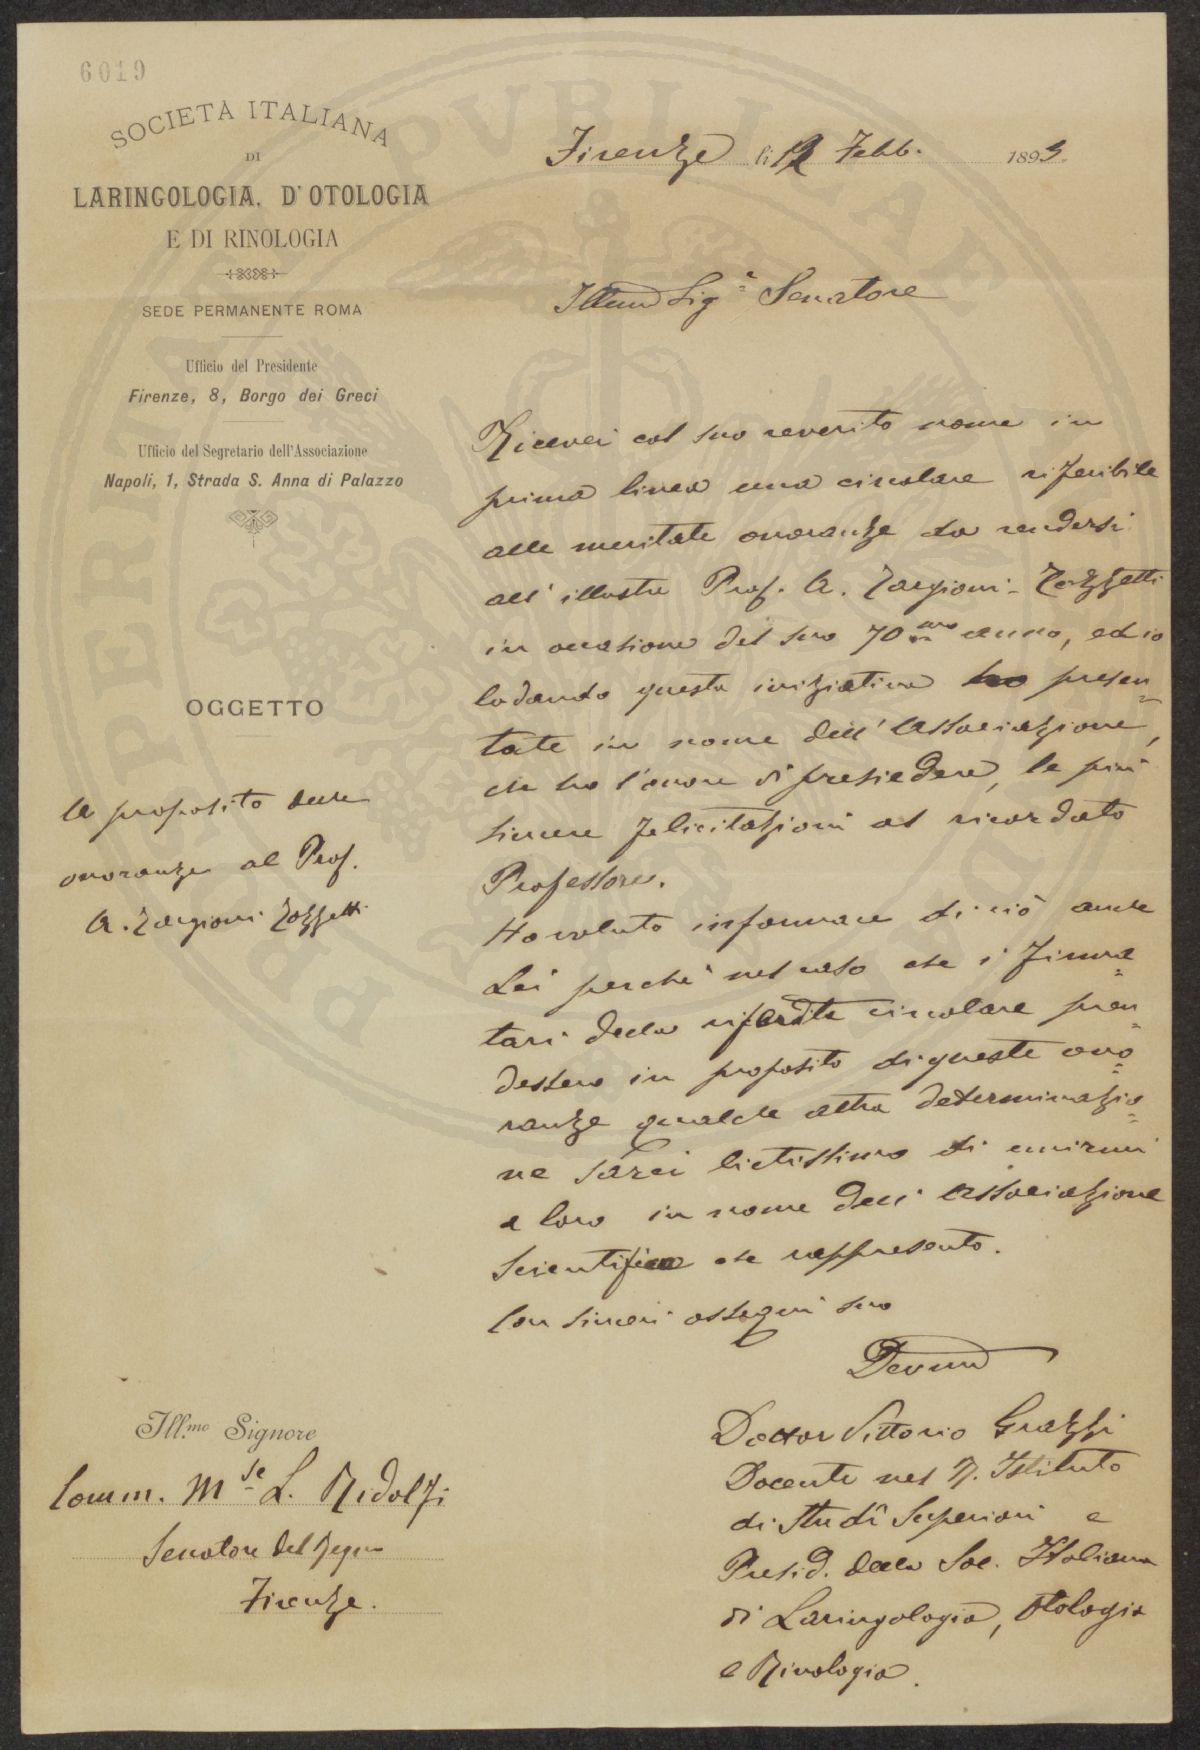 6019
SOCIETÀ ITALIANA
DI
LARINGOLOGIA, D'OTOLOGIA
E DI RINOLOGIA
SEDE PERMANENTE ROMA
Ufficio del Presidente
Firenze, 8, Borgo dei Greci
Ufficio del Segretario dell'Associazione
Napoli, 1, Strada S. Anna di Palazzo
OGGETTO
A proposito delle
onoranze al Prof.
A. Targioni Tozzetti
Firenze li 12 Febb. 1893.
Illmo Sigr Senatore
Ricevei col suo reverito nome in
prima linea una circolare riferibile
alle meritate onoranze da rendersi
all'illustre Prof. A. Targioni-Tozzetti
in occasione del suo 70mo anno, ed io
lodando questa iniziativa ho presen=
tate in nome dell'Associazione,
che ho l'onore di presiedere, le più
sincere felicitazioni al ricordato
Professore.
Ho voluto informare di ciò anche
Lei perchè nel caso che i firma=
tari della riferita circolare pren=
dessero in proposito di queste ono=
ranze qualche altra determinazio=
ne sarei lietissimo di unirmi
a loro in nome dell'Associazione
Scientifica che rappresento.
Con sinceri ossequi suo
Devmo
Dottor Vittorio Grazzi
Docente nel R. Istituto
di Studî Superiori e
Presid. della Soc. Italiana
di Laringologia, Otologia
e Rinologia.
Ill.mo Signore
Comm. Mse L. Ridolfi
Senatore del Regno
Firenze.